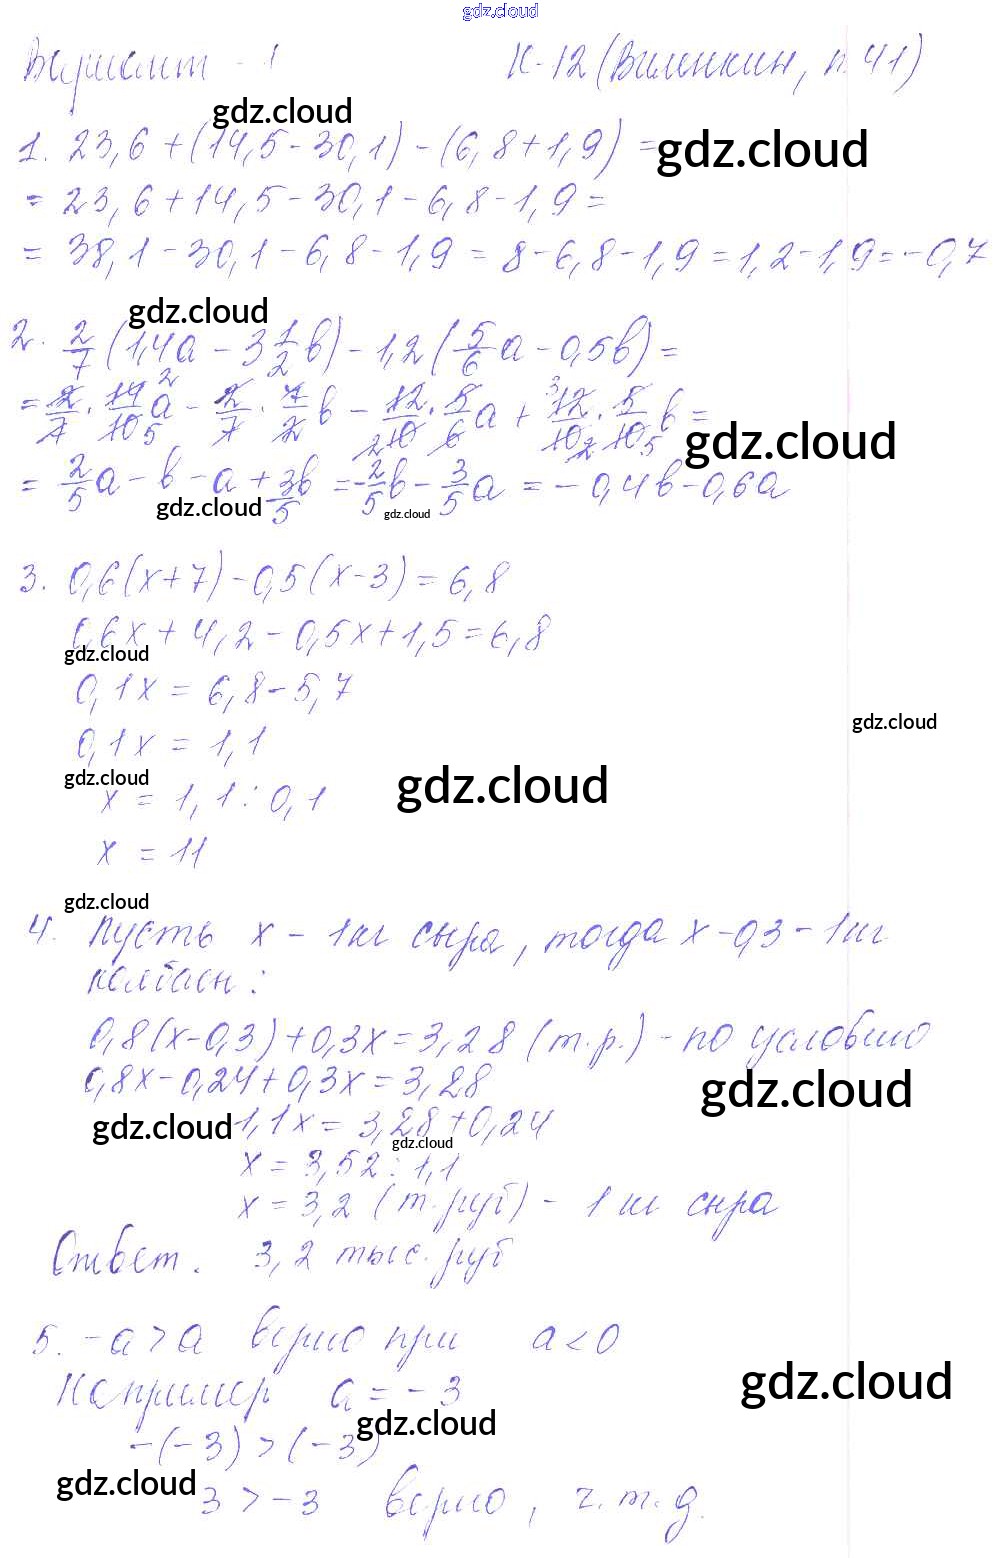 gdz.cloud
Вариант - 1 К-12 (Виленкин, п. 41)
gdz.cloud
1. 23,6 + (14,5 - 30,1) - (6,8 + 1,9) =
gdz.cloud
= 23,6 + 14,5 - 30,1 - 6,8 - 1,9 =
= 38,1 - 30,1 - 6,8 - 1,9 = 8 - 6,8 - 1,9 = 1,2 - 1,9 = -0,7
gdz.cloud
2. 2/7 (1,4a - 3 1/2 b) - 1,2 (5/6 a - 0,5b) =
= 2/7 · 14/10 a - 2/7 · 7/2 b - 12/10 · 5/6 a + 12/10 · 5/10 b =
gdz.cloud
= 2/5 a - b - a + 3/5 b = -2/5 b - 3/5 a = -0,4b - 0,6a
gdz.cloud gdz.cloud
3. 0,6(x + 7) - 0,5(x - 3) = 6,8
0,6x + 4,2 - 0,5x + 1,5 = 6,8
gdz.cloud
0,1x = 6,8 - 5,7
gdz.cloud
0,1x = 1,1
gdz.cloud gdz.cloud
x = 1,1 : 0,1
x = 11
gdz.cloud
4. Пусть x - 1кг сыра, тогда x - 0,3 - 1кг
колбасы:
0,8(x - 0,3) + 0,3x = 3,28 (т.р.) - по условию
0,8x - 0,24 + 0,3x = 3,28
gdz.cloud
1,1x = 3,28 + 0,24
gdz.cloud gdz.cloud
x = 3,52 : 1,1
x = 3,2 (т. руб) - 1 кг сыра
Ответ. 3,2 тыс. руб
5. -a > a верно при a < 0
Например a = -3
gdz.cloud
gdz.cloud
-(-3) > (-3)
gdz.cloud
3 > -3 верно, ч.т.д.